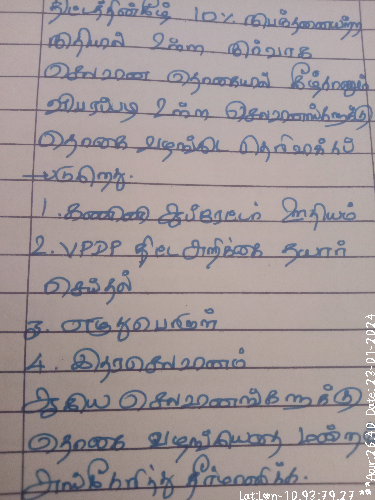 திட்டத்தின்கீழ் 10% பெக்தனையற்ற
நிதியில் உள்ள நிர்வாக
செலவின தொகையில் கீழ்காணும்
விபரப்படி உள்ள செலவினங்களுக்கு
தொகை வழங்கிட தெரிவிக்கப்
படுகிறது.
1. கணினி ஆப்ரேட்டர் ஊதியம்
2. VPDP திட்ட அறிக்கை தயார்
செய்தல்
3. எழுதுபொருள்
4. இதரசெலவினம்
ஆகிய செலவினங்களுக்கு
தொகை வழங்கியதை மன்ற
அங்கீகரித்து தீர்மானிக்க.
Date:23-01-2024
Lat:Lon-10.93:79.27